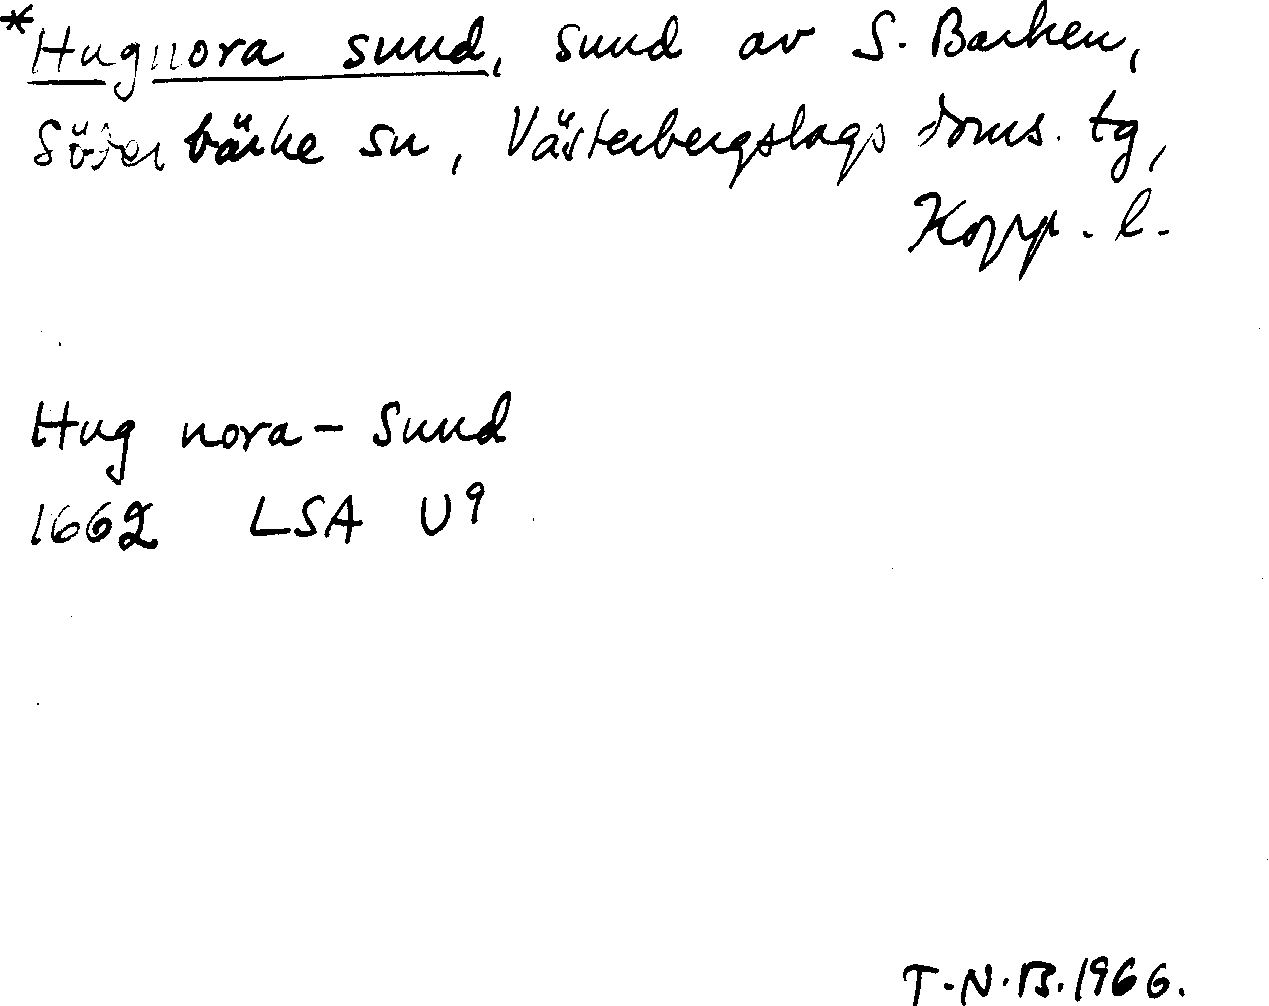 *Hugnora sund, sund av S. Barken,
Söderbärke sn, Västerbergslags doms. tg,
Kopp. l.
Hug nora - Sund
1662 LSA U9
T.N.B. 1966.